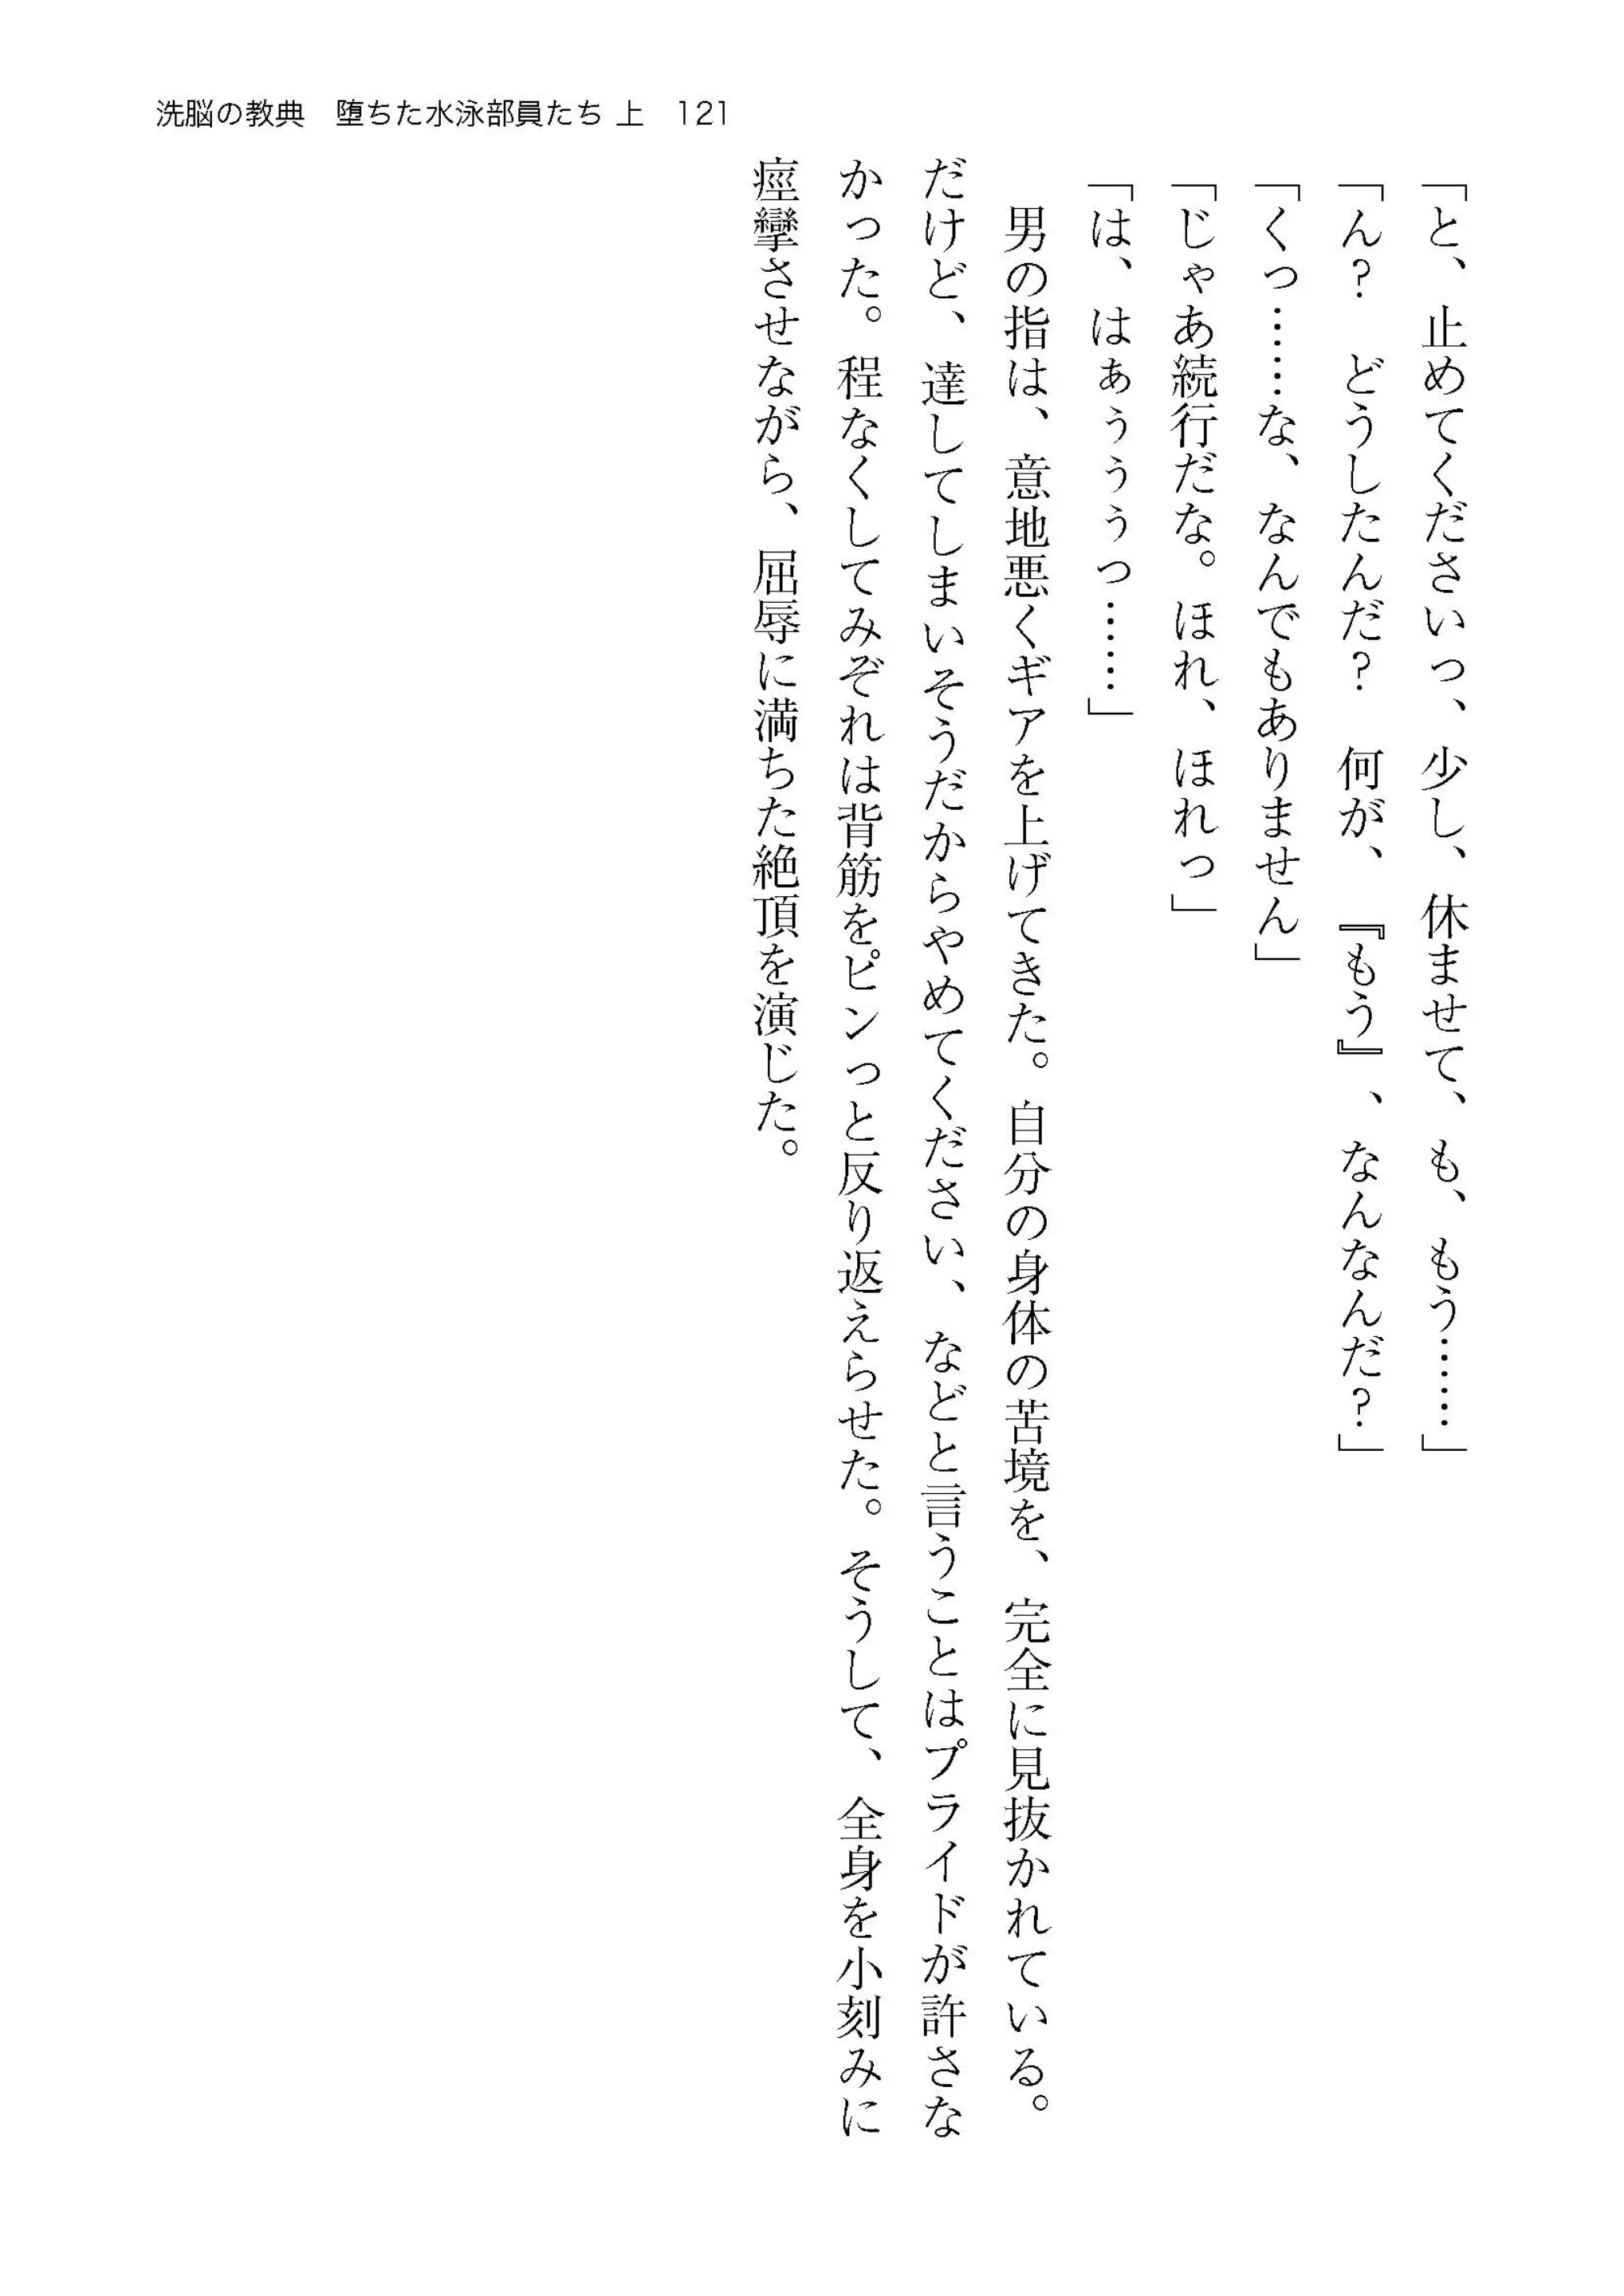 洗脳の教典　堕ちた水泳部員たち 上　121
「と、止めてくださいっ、少し、休ませて、も、もう……」
「ん？　どうしたんだ？　何が、『もう』、なんなんだ？」
「くっ……な、なんでもありません」
「じゃあ続行だな。ほれ、ほれっ」
「は、はぁぅぅぅっ……」
　男の指は、意地悪くギアを上げてきた。自分の身体の苦境を、完全に見抜かれている。
だけど、達してしまいそうだからやめてください、などと言うことはプライドが許さな
かった。程なくしてみぞれは背筋をピンっと反り返えらせた。そうして、全身を小刻みに
痙攣させながら、屈辱に満ちた絶頂を演じた。